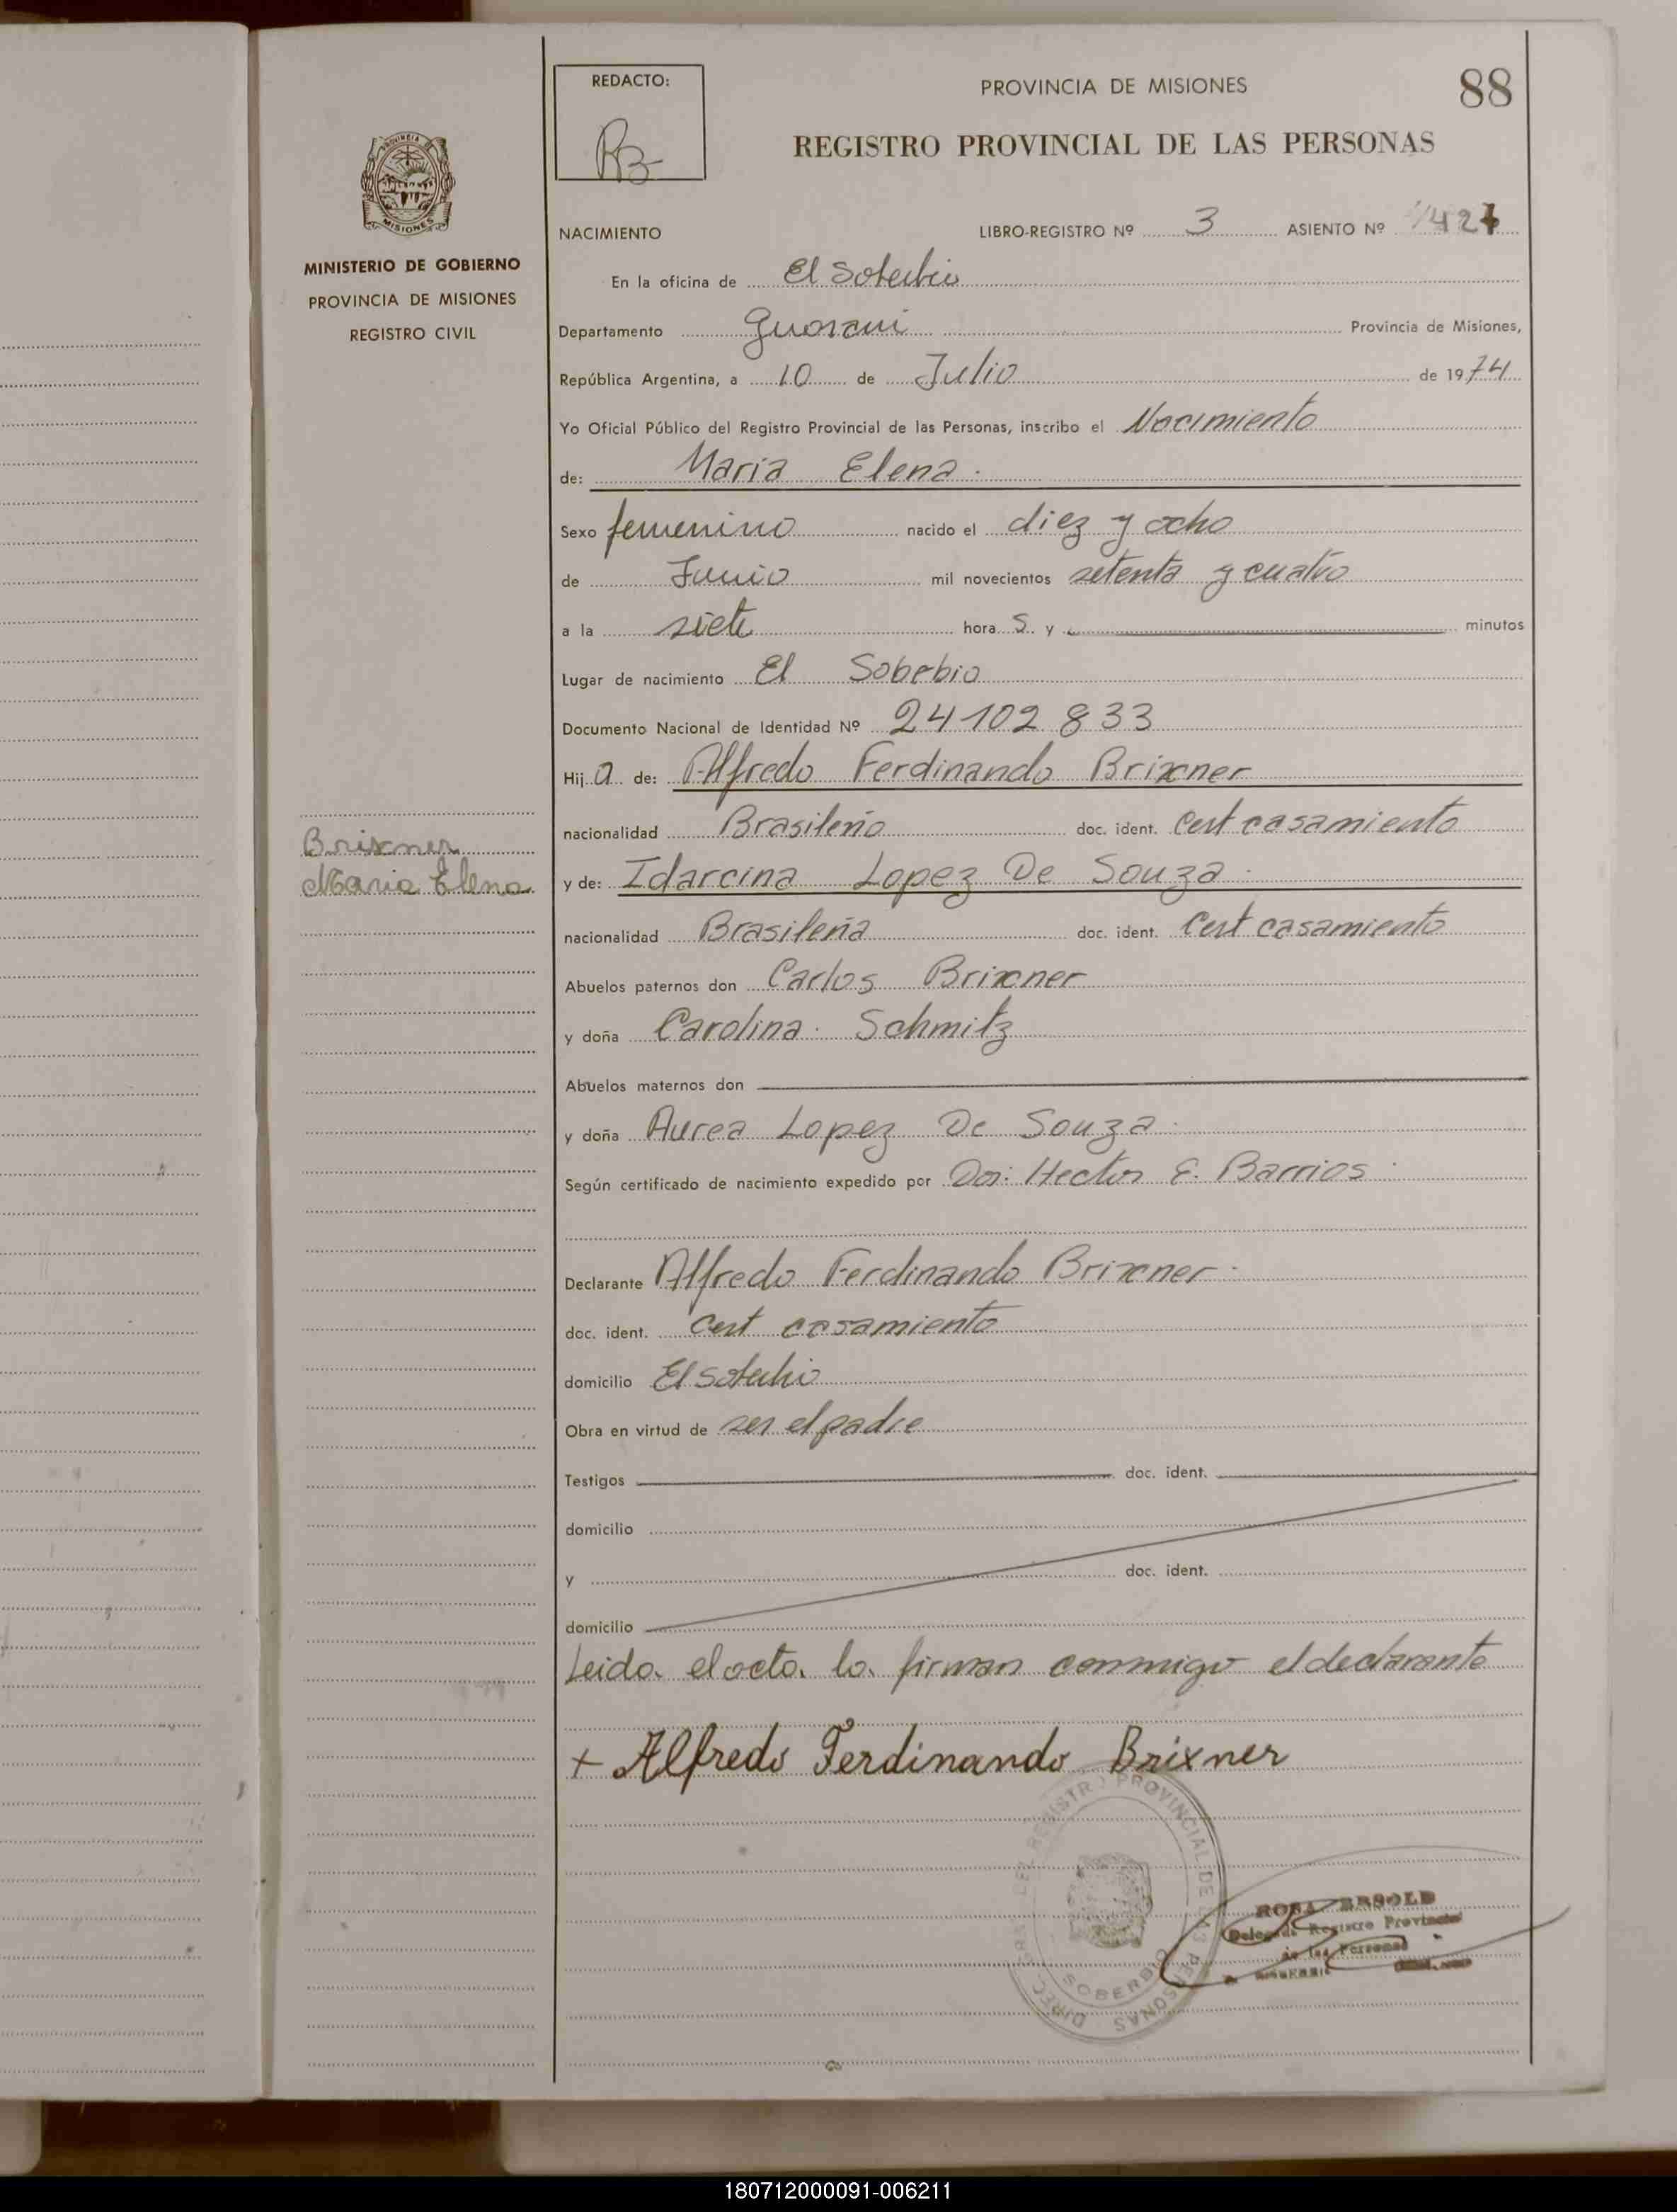 REDACTO:
PROVINCIA DE MISIONES
88
REGISTRO PROVINCIAL DE LAS PERSONAS
PROVINCIA DE
MISIONES
MINISTERIO DE GOBIERNO
PROVINCIA DE MISIONES
REGISTRO CIVIL
NACIMIENTO LIBRO-REGISTRO Nº 3 ASIENTO Nº
En la oficina de El Soberbio
Departamento Guarani Provincia de Misiones,
República Argentina, a 10 de Julio de 1974
Yo Oficial Público del Registro Provincial de las Personas, inscribo el Nacimiento
de: Maria Elena.
Sexo femenino nacido el diez y ocho
de Junio mil novecientos setenta y cuatro
a la siete hora s y minutos
Lugar de nacimiento El Soberbio
Documento Nacional de Identidad Nº 24102833
Hij a de: Alfredo Ferdinando Brixner
nacionalidad Brasileño doc. ident. Cert casamiento
Brixner
Maria Elena
y de: Idarcina Lopez De Souza.
nacionalidad Brasileña doc. ident. Cert casamiento
Abuelos paternos don Carlos Brixner
y doña Carolina Schmitz
Abuelos maternos don
y doña Aurea Lopez De Souza.
Según certificado de nacimiento expedido por Dor: Hector E. Barrios.
Declarante Alfredo Ferdinando Brixner.
doc. ident. Cert casamiento
domicilio El Soberbio
Obra en virtud de ser el padre
Testigos doc. ident.
domicilio
y doc. ident.
domicilio
Leida el acta la firman conmigo el declarante
+ Alfredo Ferdinando Brixner
REGISTRO PROVINCIAL DE LAS PERSONAS
SOBERBIO
ROSA
Registro Provincial
de las Personas
180712000091-006211